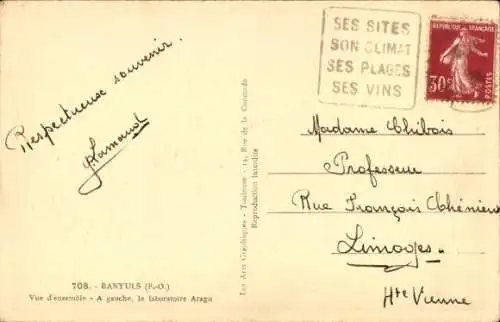 SES SITES
SON CLIMAT
SES PLAGES
SES VINS
REPUBLIQUE FRANÇAISE
30c
POSTES
Respectueux souvenir.
Madame Chibois
Professeur
Rue François Chénieu
Limoges.
Hte Vienne
Les Arts Graphiques - Toulouse - 14, Rue de la
Reproduction Interdite
708. - BANYULS (P.-O.)
Vue d'ensemble - A gauche, le laboratoire Arago